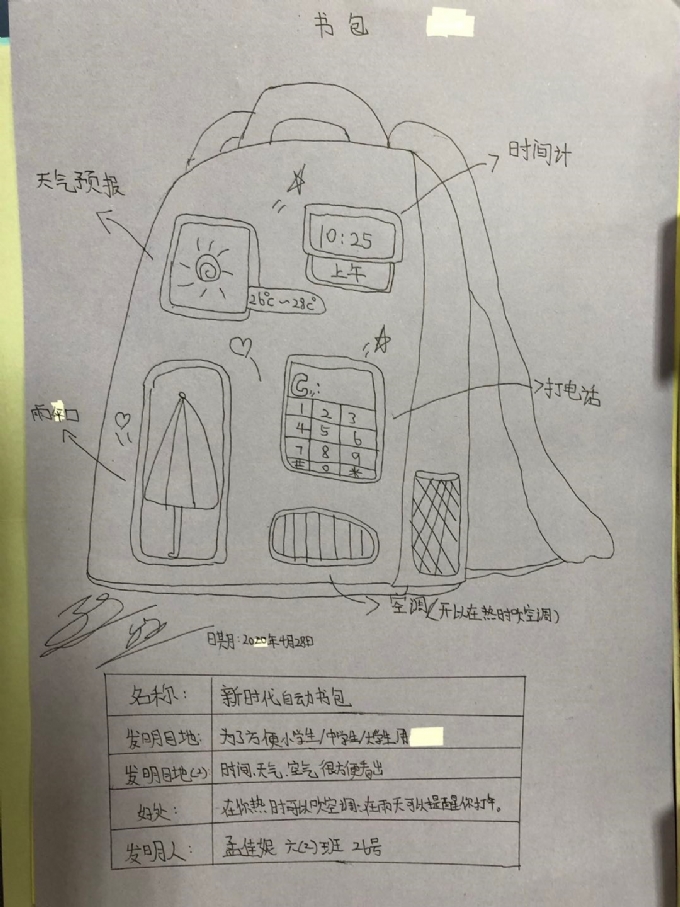 书包
时间计
天气预报
10:25
上午
26℃~28℃
打电话
1 2 3
4 5 6
7 8 9
# 0 *
空调(开以在热时吹空调)
日期:2020年4月28日
名称: 新时代自动书包
发明目地: 为了方便小学生/中学生/大学生用
发明目地(2) 时间、天气、空气 很方便看出
好处: 在你热时可以吹空调、在雨天可以提醒你打伞。
发明人: 孟佳妮 六(2)班 26号